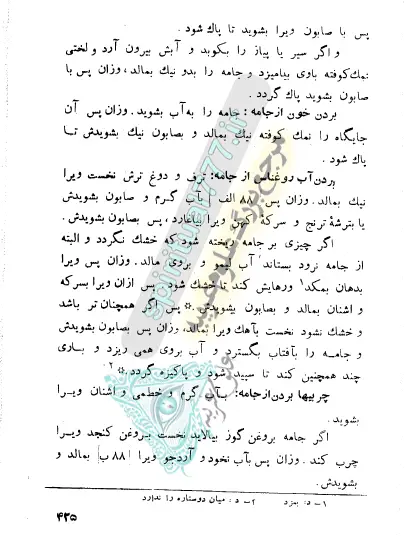 پس با صابون ویرا بشوید تا پاك شود .
و اگر سیر یا پیاز را بکوبد و آبش بیرون آرد و لختی
نمك کوفته باوی بیامیزد و جامه را بدو نیك بمالد ، وزان پس با
صابون بشوید پاك گردد .
بردن خون از جامه : جامه را به آب بشوید . وزان پس آن
جایگاه را نمك کوفته نیك بمالد و بصابون نیك بشویدش تا
پاك شود .
بردن آب روغناس از جامه : ترف و دوغ ترش نخست ویرا
نیك بمالد . وزان پس |۸۸ الف| بآب گرم و صابون بشویدش
یا بترشهٔ ترنج و سرکهٔ کهن ویرا بیاغارد ، پس بصابون بشویدش .
اگر چیزی بر جامه ریخته شود که خشك نگردد و البته
از جامه نرود بستاند آب لیمو و بروی مالد . وزان پس ویرا
بدهان بمکد۱ ورهایش کند تا خشك شود پس ازان ویرا بسرکه
و اشنان بمالد و بصابون بشویدش .* پس اگر همچنان تر باشد
و خشك نشود نخست بآهك ویرا بمالد ، وزان پس بصابون بشویدش
و جامه را بآفتاب بگسترد و آب بروی همی ریزد و باری
چند همچنین کند تا سپید شود و پاکیزه گردد .*۲
چربیها بردن از جامه : بآب گرم و خطمی و اشنان ویرا
بشوید .
اگر جامه بروغن گوز بیالاید نخست بروغن کنجد ویرا
چرب کند . وزان پس بآب نخود و آردجو ویرا |۸۸ ب| بمالد و
بشویدش .
۱ – د : بمزد ۲ – د : میان دو ستاره را ندارد
۴۳۵